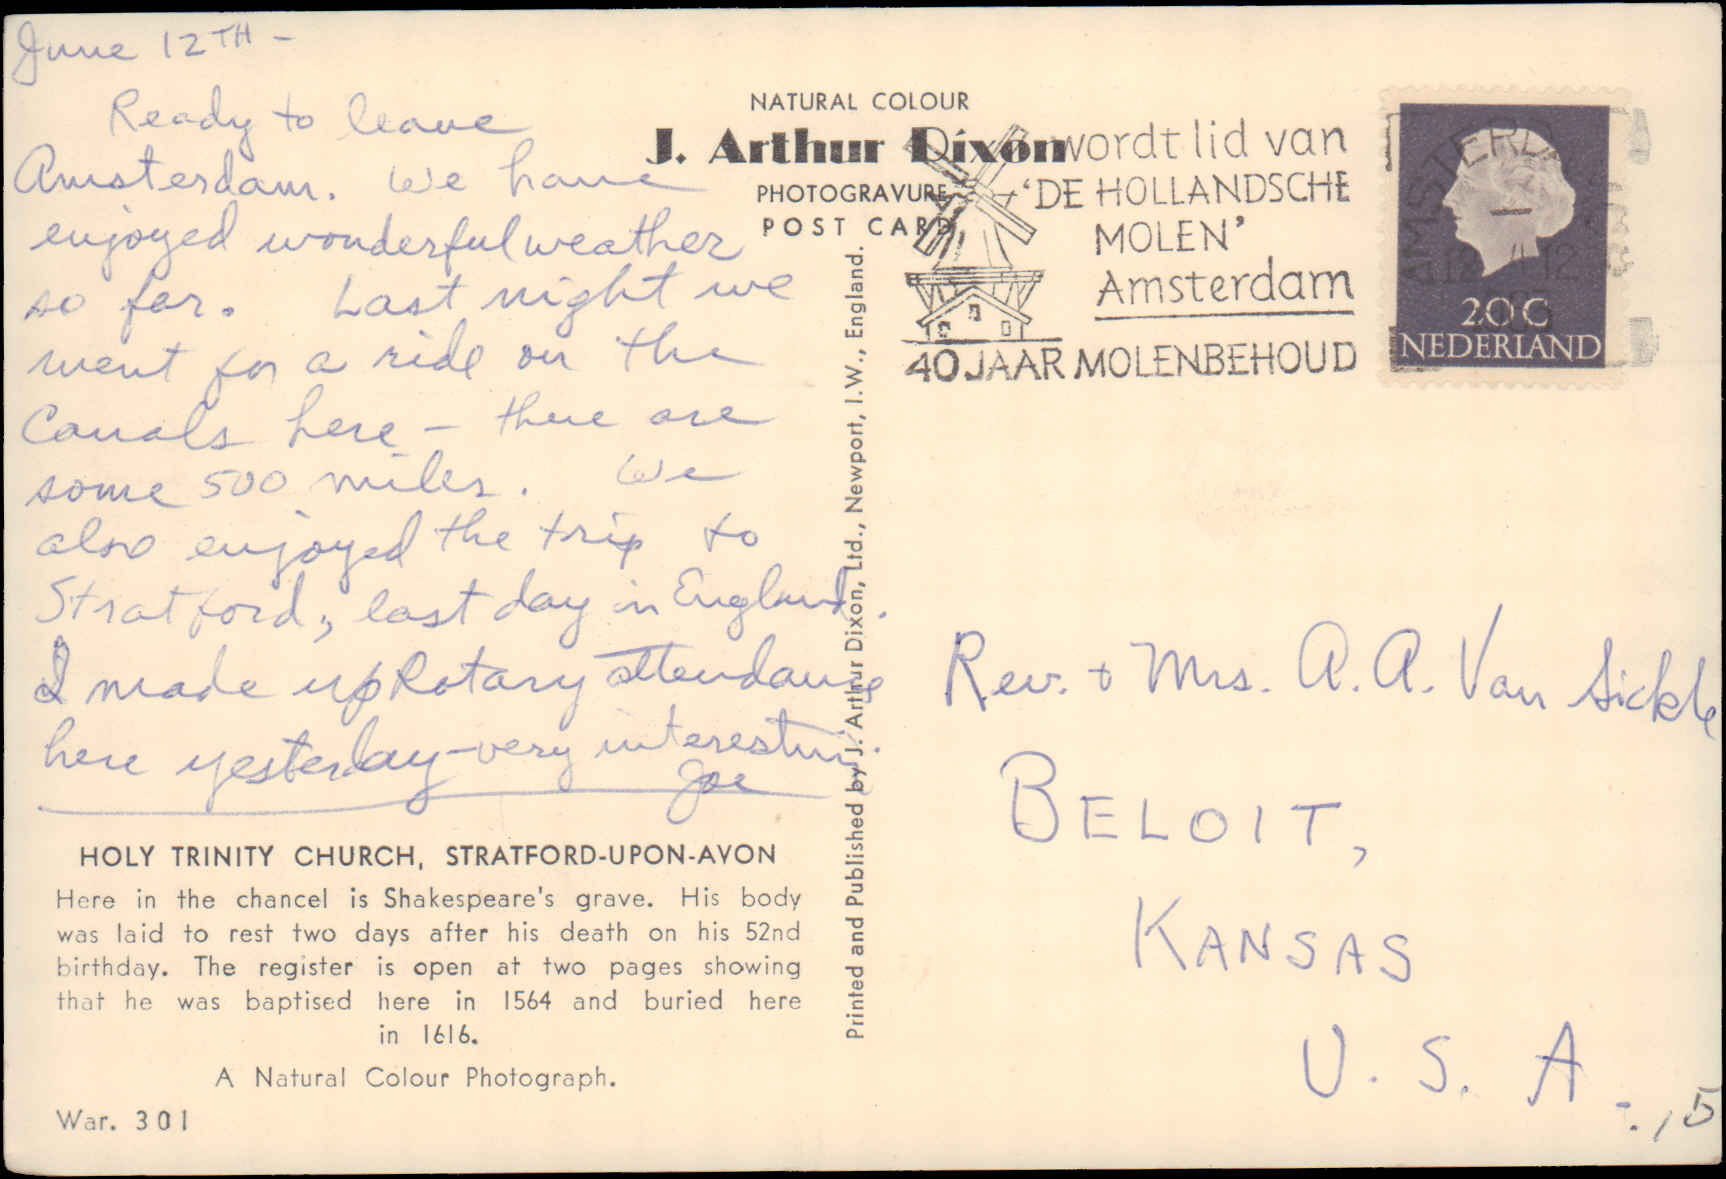 June 12TH -
Ready to leave
Amsterdam. We have
enjoyed wonderful weather
so far. Last night we
went for a ride on the
Canals here - there are
some 500 miles. We
also enjoyed the trip to
Stratford, last day in England.
I made up Rotary attendance
here yesterday - very interesting.
Joe
HOLY TRINITY CHURCH, STRATFORD-UPON-AVON
Here in the chancel is Shakespeare's grave. His body
was laid to rest two days after his death on his 52nd
birthday. The register is open at two pages showing
that he was baptised here in 1564 and buried here
in 1616.
A Natural Colour Photograph.
War. 301
NATURAL COLOUR
J. Arthur Dixon
PHOTOGRAVURE
POST CARD
Printed and Published by J. Arthur Dixon, Ltd., Newport, I.W., England.
wordt lid van
'DE HOLLANDSCHE
MOLEN'
Amsterdam
40 JAAR MOLENBEHOUD
20 C
NEDERLAND
Rev. + Mrs. A. A. Van Sickle
BELOIT,
KANSAS
U. S. A.
.15